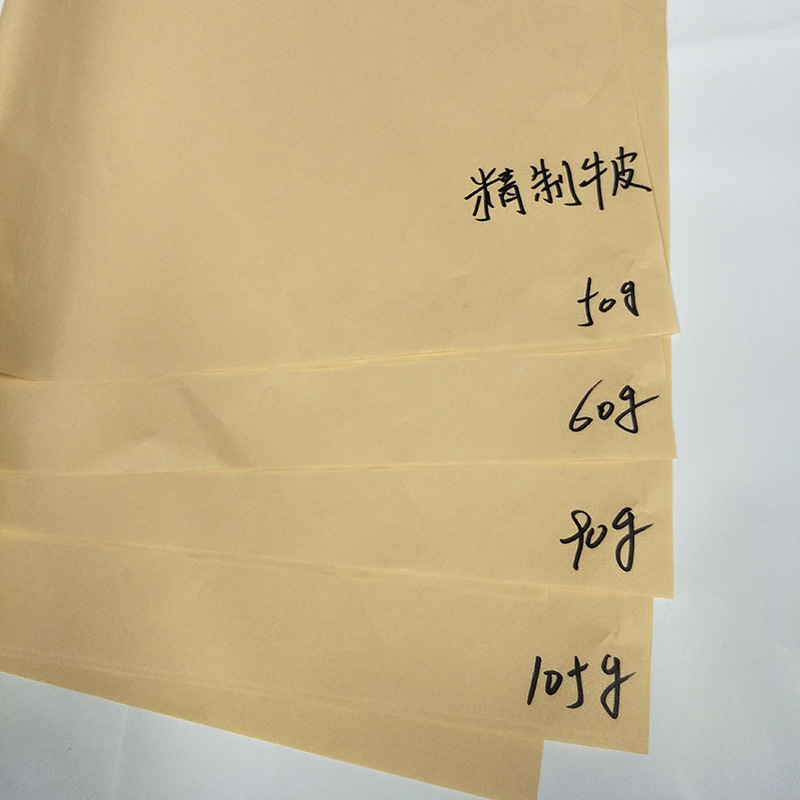 精制牛皮
50g
60g
90g
105g